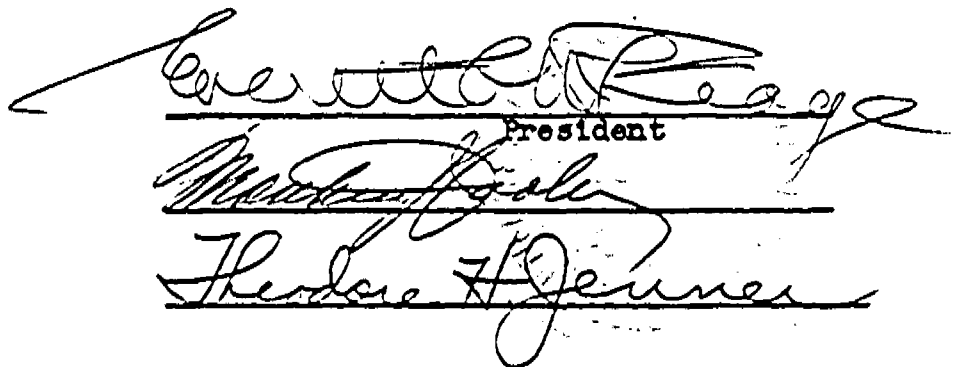 Everett C. McKeage
President
Theodore H. Jenner